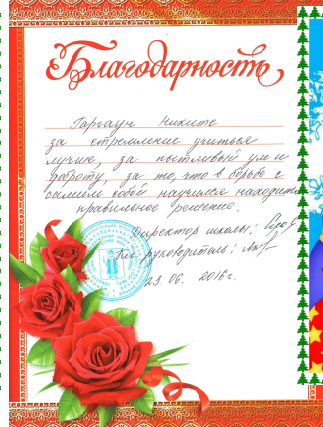 Благодарность
Горгаун Никите
за стремление учиться
лучше, за пытливый ум и
доброту, за то, что в борьбе с
самим собой научился находить
правильное решение.
Директор школы:
Кл. руководитель:
23.06. 2016г.